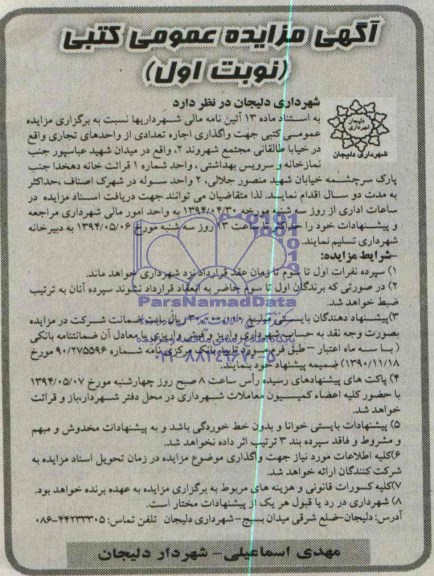 آگهی مزایده عمومی کتبی
(نوبت اول)
شهرداری دلیجان در نظر دارد
به استناد ماده ۱۳ آئین نامه مالی شهرداریها نسبت به برگزاری مزایده
عمومی کتبی جهت واگذاری اجاره تعدادی از واحدهای تجاری واقع
در خیابا طالقانی مجتمع شهروند ۲، واقع در میدان شهید عباسپور جنب
نمازخانه و سرویس بهداشتی، واحد شماره ۱ قرائت خانه دهخدا جنب
شهرداری دلیجان
پارک سرچشمه خیابان شهید منصور جلالی، ۲ واحد سوله در شهرک اصناف، حداکثر
به مدت دو سال اقدام نماید. لذا متقاضیان می توانند جهت دریافت اسناد مزایده در
ساعات اداری از روز سه شنبه مورخه به واحد امور مالی شهرداری مراجعه
و پیشنهادات خود را حداکثر تا ساعت ۱۳ روز سه شنبه مورخ ۱۳۹۴/۰۵/۰۶ به دبیرخانه
شهرداری تسلیم نمایند.
-شرایط مزایده:
۱) سپرده نفرات اول تا سوم تا زمان عقد قرارداد نزد شهرداری خواهد ماند.
۲) در صورتی که برندگان اول تا سوم حاضر به انعقاد قرارداد نشوند سپرده آنان به ترتیب
ضبط خواهد شد.
ParsNamadData
۳)پیشنهاد دهندگان بایستی مبلغ ریال بابت ضمانت شرکت در مزایده
بصورت وجه نقد به حساب شهرداری واریز و فیش واریزی یا معادل آن ضمانتنامه بانکی
( با سه ماه اعتبار – طبق فرم مورد تایید بانک مرکزی نامه شماره ۹۰/۲۷۵۵۹۶ مورخ
۱۳۹۰/۱۱/۱۸) ضمیمه پیشنهاد خود بنمایند.
۰۲۱-۸۸۳۴۹۶۷۰-۵
۴) پاکت های پیشنهادهای رسیده رأس ساعت ۸ صبح روز چهارشنبه مورخ ۱۳۹۴/۰۵/۰۷
با حضور کلیه اعضاء کمیسیون معاملات شهرداری در محل دفتر شهردار، باز و قرائت
خواهد شد.
۵) پیشنهادات بایستی خوانا و بدون خط خوردگی باشد و به پیشنهادات مخدوش و مبهم
و مشروط و فاقد سپرده بند ۳ ترتیب اثر داده نخواهد شد.
۶)کلیه اطلاعات مورد نیاز جهت واگذاری موضوع مزایده در زمان تحویل اسناد مزایده به
شرکت کنندگان ارائه خواهد شد.
۷)کلیه کسورات قانونی و هزینه های مربوط به برگزاری مزایده به عهده برنده خواهد بود.
۸) شهرداری در رد یا قبول هر یک از پیشنهادات مختار است.
آدرس: دلیجان-ضلع شرقی میدان بسیج-شهرداری دلیجان تلفن تماس: ۴۴۲۳۳۳۰۵-۰۸۶
مهدی اسماعیلی- شهردار دلیجان